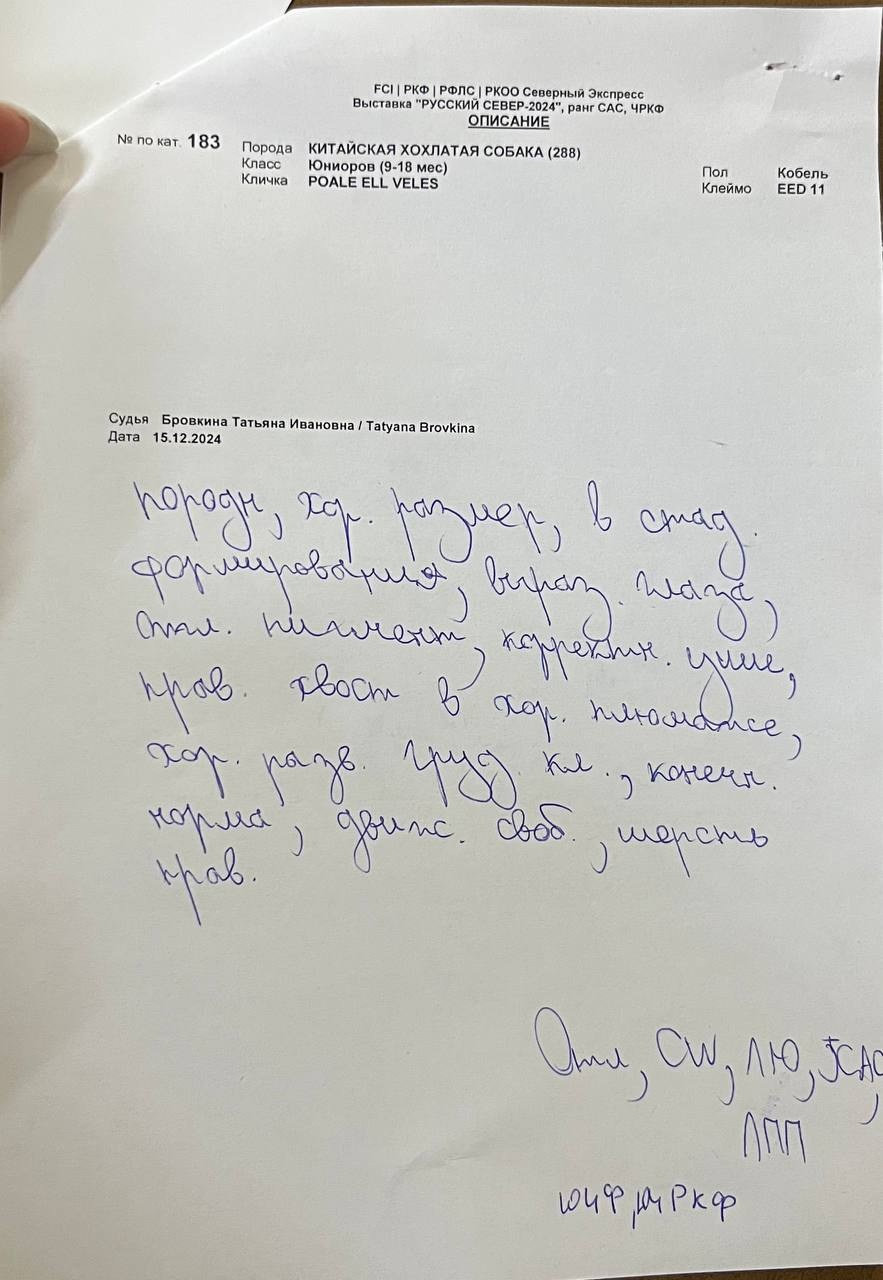 FCI | РКФ | РФЛС | РКОО Северный Экспресс
Выставка "РУССКИЙ СЕВЕР-2024", ранг САС, ЧРКФ
ОПИСАНИЕ
№ по кат. 183
Порода КИТАЙСКАЯ ХОХЛАТАЯ СОБАКА (288)
Класс Юниоров (9-18 мес)
Кличка POALE ELL VELES
Пол Кобель
Клеймо EED 11
Судья Бровкина Татьяна Ивановна / Tatyana Brovkina
Дата 15.12.2024
породн, хор. размер, в стад.
формирования, выраз. глаза,
отл. пигмент, корректн. уши,
прав. хвост в хор. плюмаже,
хор. разв. груд. кл., конечн.
норма, движ. своб., шерсть
прав.
Отл, CW, ЛЮ, JCAC,
ЛПП
ЮЧФ, ЮЧРКФ